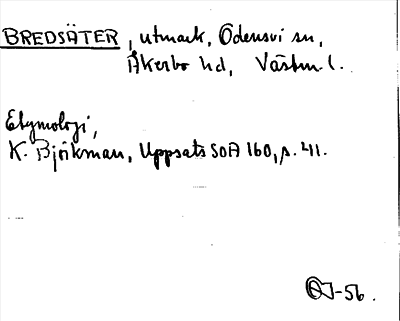 BREDSÄTER, utmark, Odensvi sn,
Åkerbo hd, Västm. l.
Etymologi,
K. Björkman, Uppsats SOA 160, s. 41.
-56.